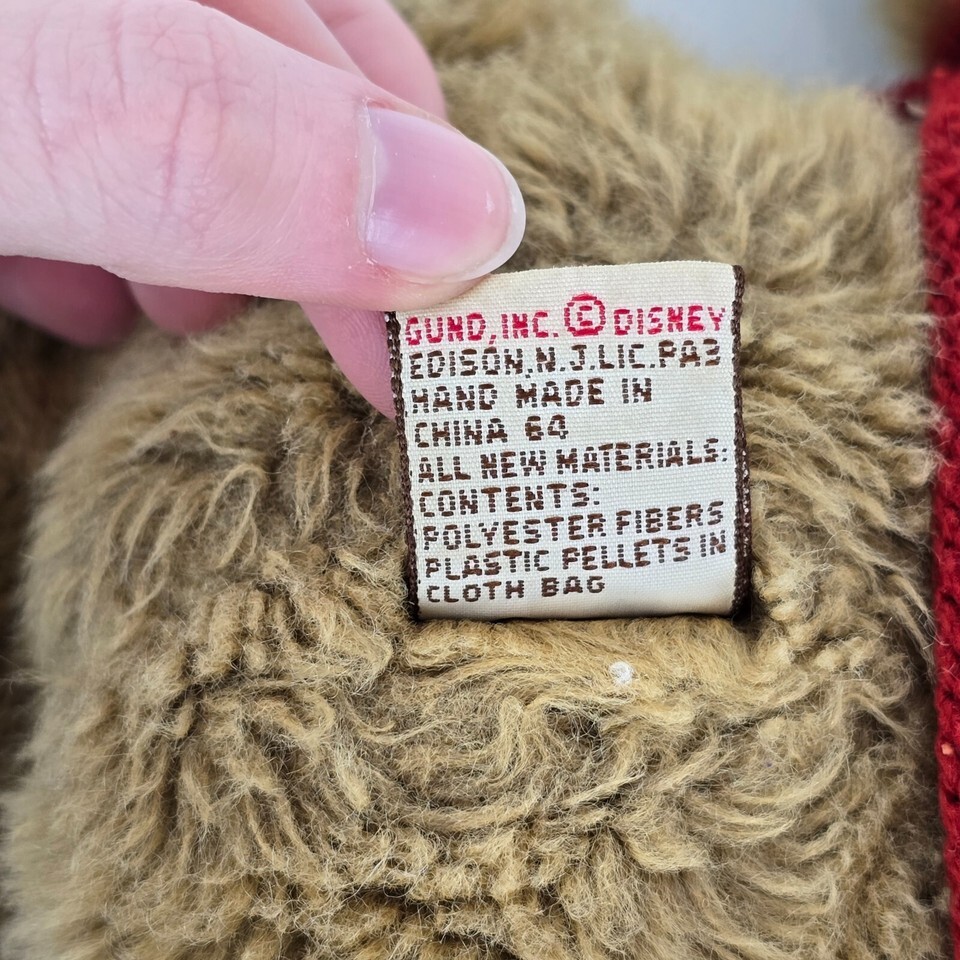 GUND, INC. © DISNEY
EDISON, N.J. LIC. PA3
HAND MADE IN
CHINA 64
ALL NEW MATERIALS:
CONTENTS:
POLYESTER FIBERS
PLASTIC PELLETS IN
CLOTH BAG